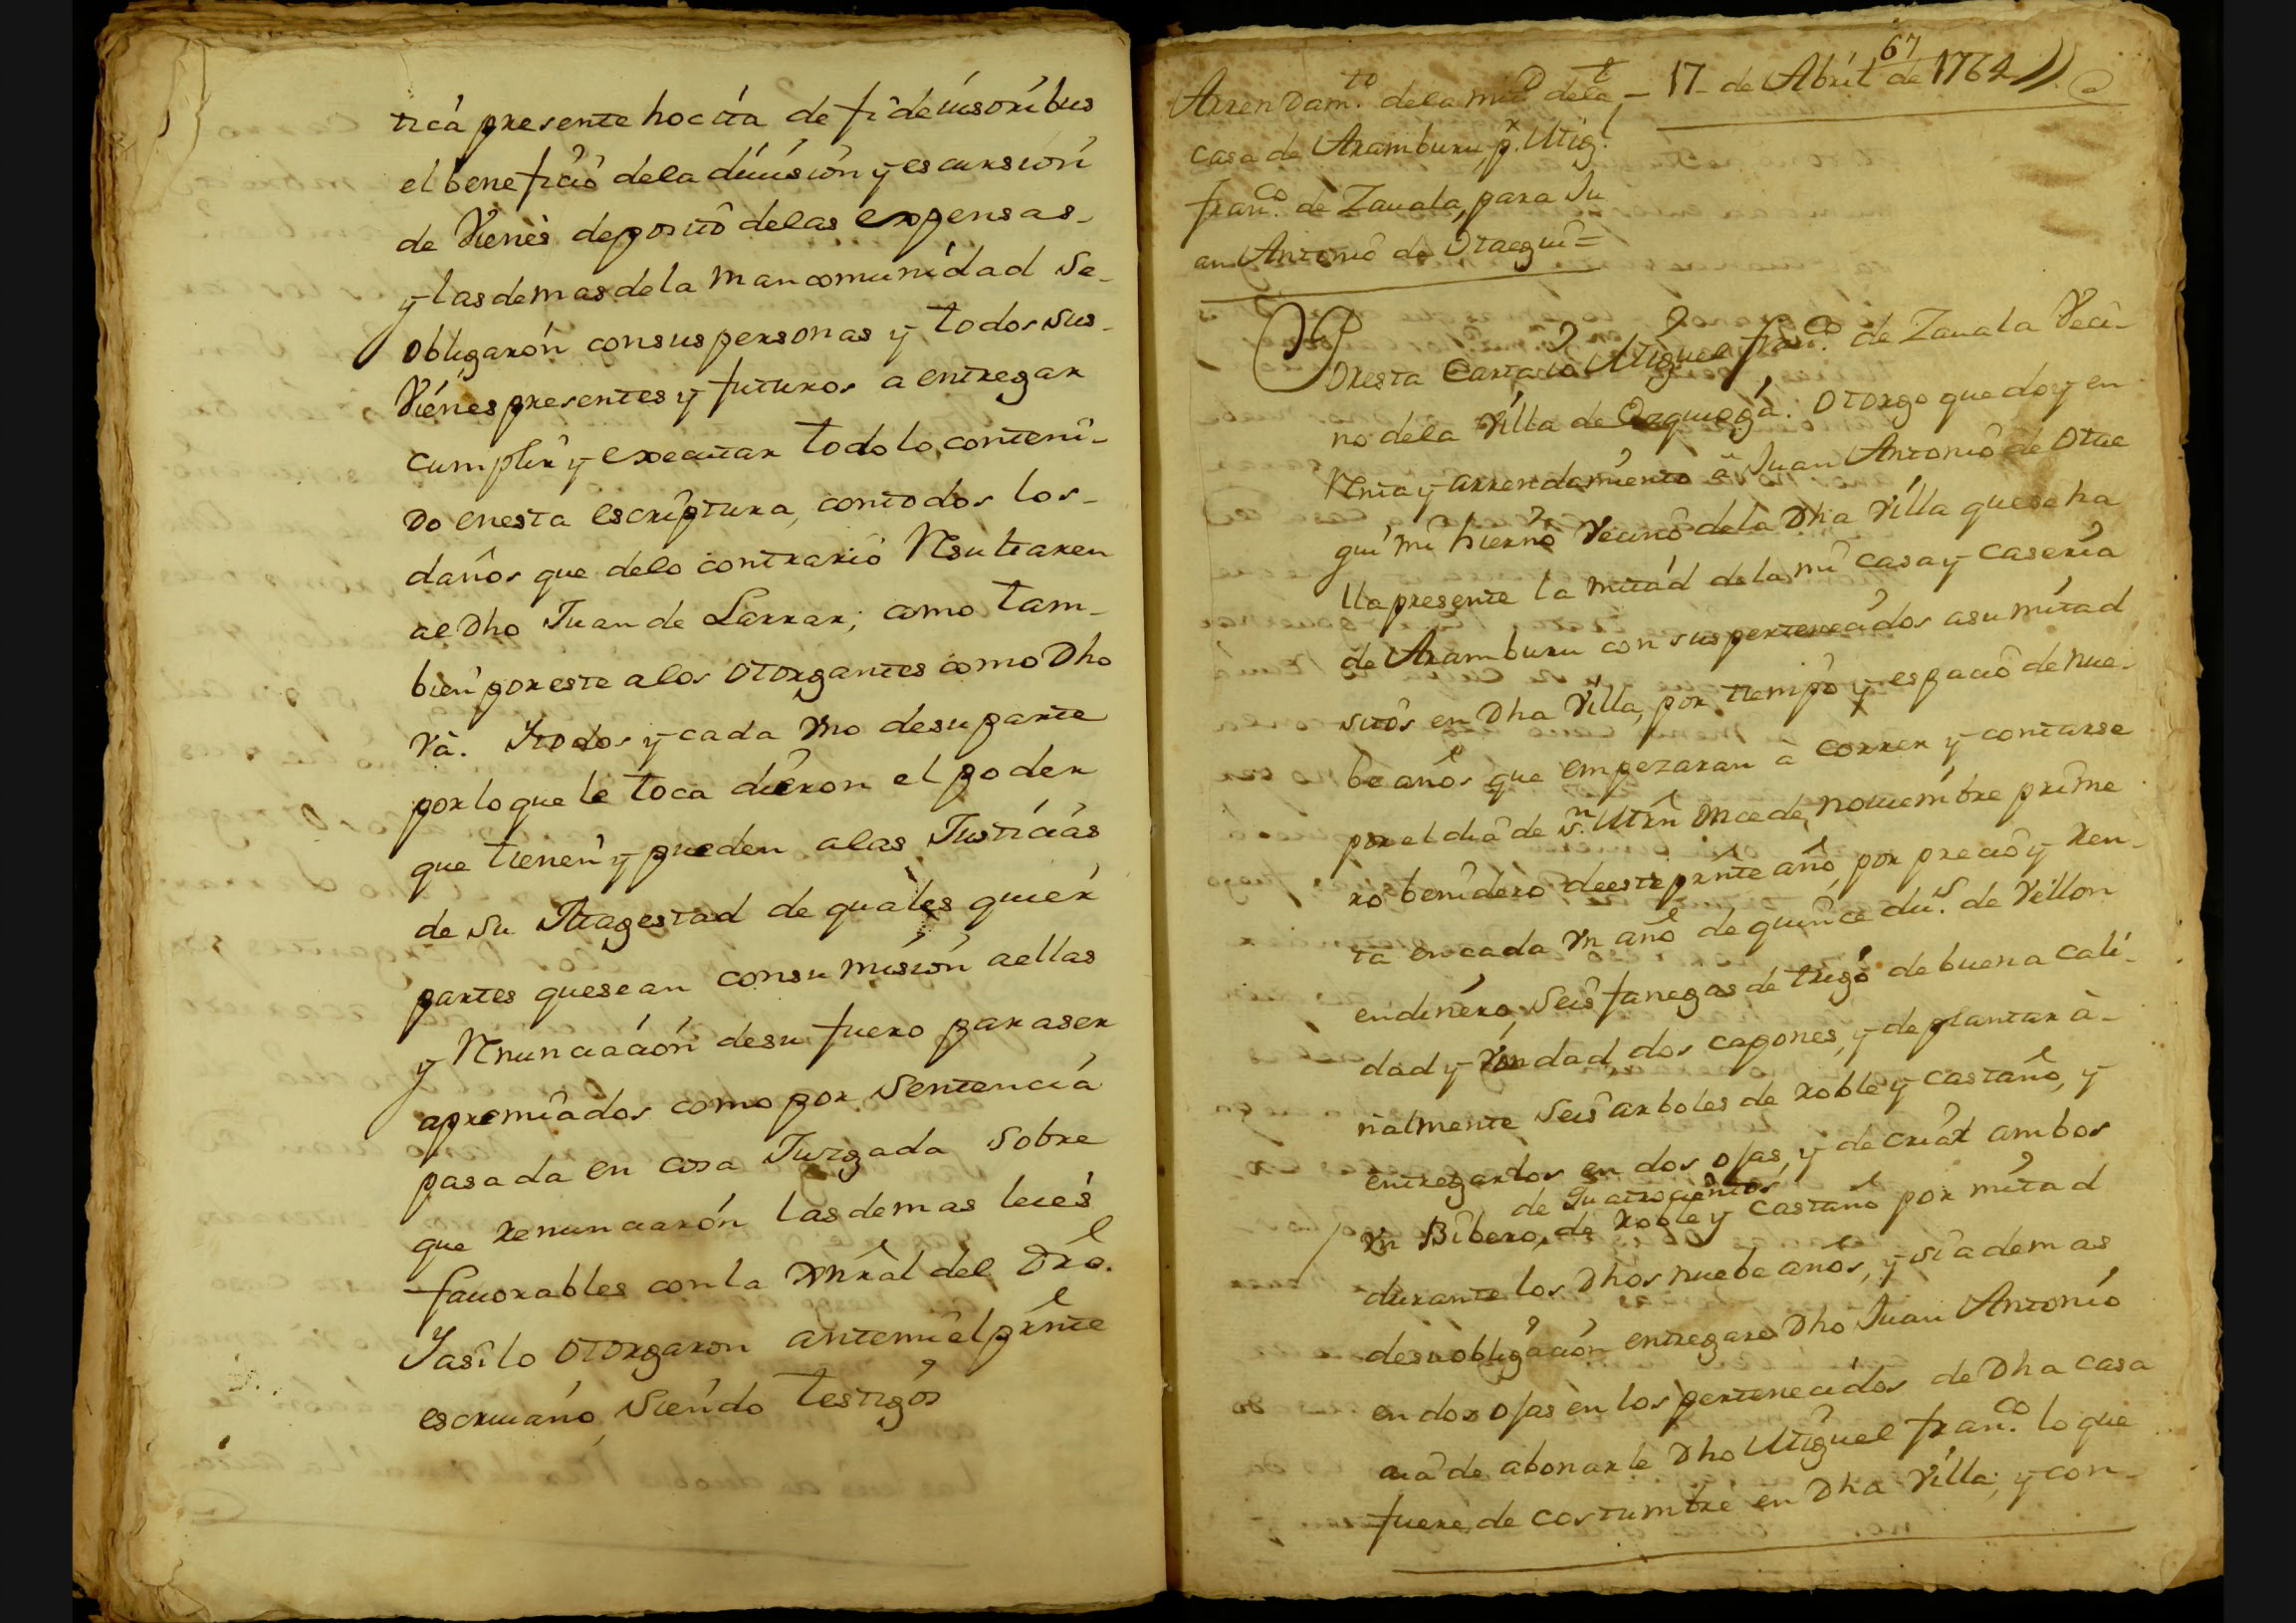 tica presente hocita de fideiusoribus
el beneficio dela diuision y escursion
de Vienes deposito delas expensas
y las demas dela mancomunidad Se
obligaron consus personas y todos sus
Vienes presentes y futuros a entregar
cumplir y executar todo lo conteni-
do enesta escriptura, contodos los
daños que delo contrario Resultaren
al Dho Juan de Larrar; como tam-
bien por este alos otorgantes como Dho
Va. Y todos y cada Vno desu parte
por lo que le toca dieron el poder
que tienen y pueden alas Justicias
de Su Magestad de quales quier
partes que sean consumision aellas
y Renunciacion desu fuero para ser
apremiados como por Sentencia
pasada en cosa Juzgada Sobre
que renunciaron las demas leies
fauorables con la Gnral del Dro.
Y asi lo otorgaron antemi el prnte
escriuano, Siendo testigos
67
Arrendam.to dela mitd dela - 17 - de Abril de 1764
casa de Aramburu, p.r Mig.l
fran.co de Zauala, para Ju
an Antonio de Otaegui =
Por esta Carta io Miguel fran.co de Zauala Veci-
no dela Villa de Ezquioga: Otorgo que doy en
Renta y arrendamiento à Juan Antonio de Otae
gui mi hierno Vecino dela Dha Villa que se ha
lla presente la mitad dela mi casa y caseria
de Aramburu con sus pertenecidos asu mitad
sitos en Dha Villa, por tiempo y espacio de nue-
be años que empezaran à correr y contarse
por el dia de S.n Mrn once de nouiembre prime
ro benidero deeste prnte año, por precio y Ren-
ta en cada Vn año de quince du.s de Vellon
en dinero, Seis fanegas de trigo de buena cali-
dad y Vondad, dos capones, y de plantar à-
nialmente Seis arboles de roble y castaño, y
entregarlos en dos ojas, y de criar ambos
de Quatrocientos
Vn Bibero, de Roble y Castaño por mitad
durante los Dhos nuebe años, y si ademas
desu obligacion entregare Dho Juan Antonio
en dos ojas en los pertenecidos de Dha casa
aia de abonarle Dho Miguel fran.co lo que
fuere de costumbre en Dha Villa; y con-